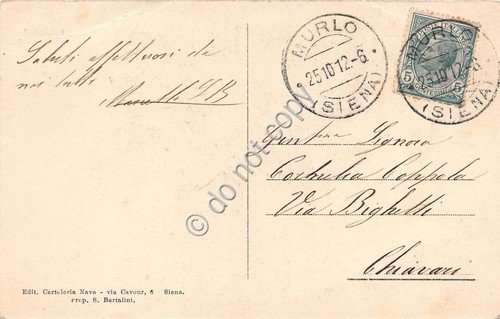 Saluti affettuosi da
noi tutti
MURLO
25 10 12-6
(SIENA)
MURLO
25 10 12-6
(SIENA)
5
5
Signora
Coppola
Via Bighetti
Chiavari
Edit. Cartoleria Nava - via Cavour, 6 Siena.
Prop. S. Bartalini.
© do not copy